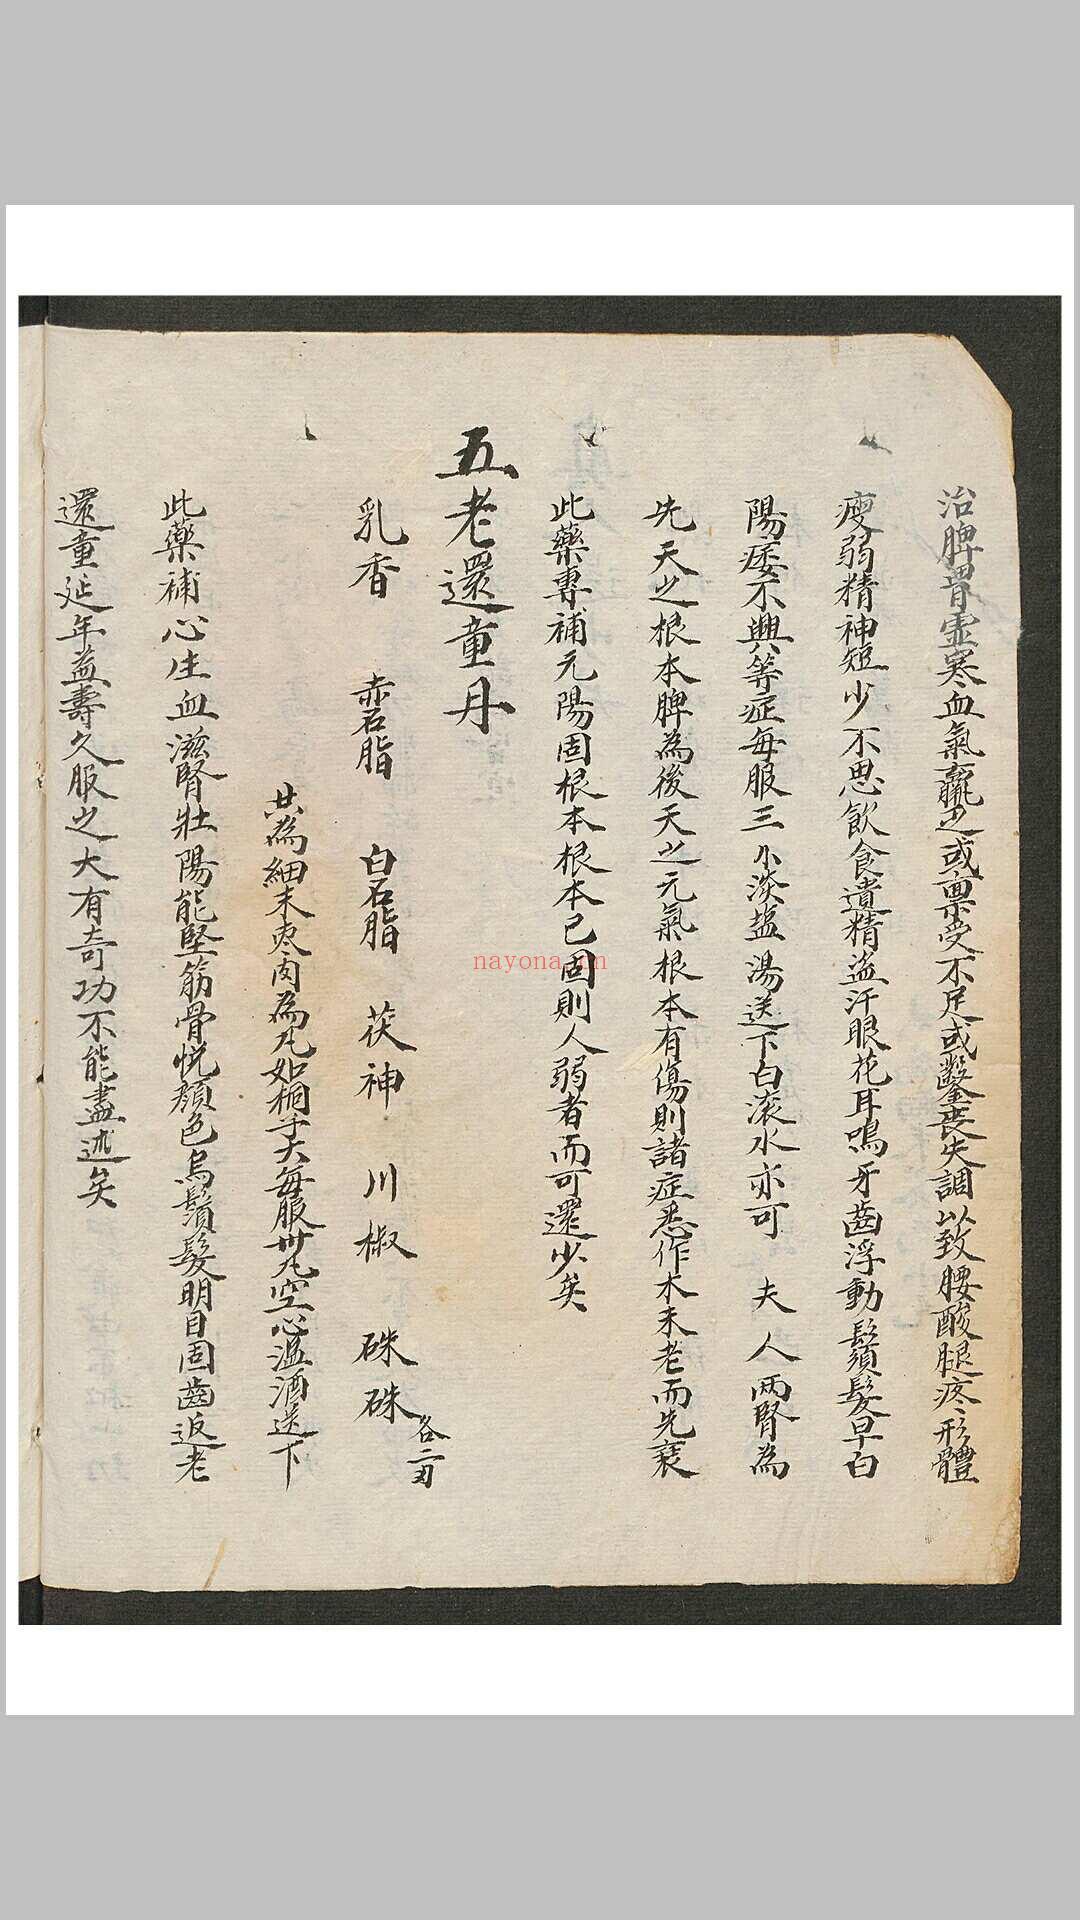 治脾胃虛寒血氣羸乏或禀受不足或鑿喪失調以致腰酸腿疼形體
瘦弱精神短少不思飲食遺精盗汗眼花耳鳴牙齒浮動鬚髮早白
陽痿不興等症每服三小淡盐湯送下白滚水亦可 夫人兩腎為
先天之根本脾為後天之元氣根本有傷則諸症悉作木未老而先衰
此藥專補元陽固根本根本已固則人弱者而可還少矣
五老還童丹
乳香 赤石脂 白石脂 茯神 川椒 硃硃各二刄
共為細末枣肉為丸如桐子大每服卅丸空心温酒送下
此藥補心生血滋腎壯陽能堅筋骨悦顔色烏鬚髮明目固齒返老
還童延年益壽久服之大有奇功不能盡述矣
nayona.cn